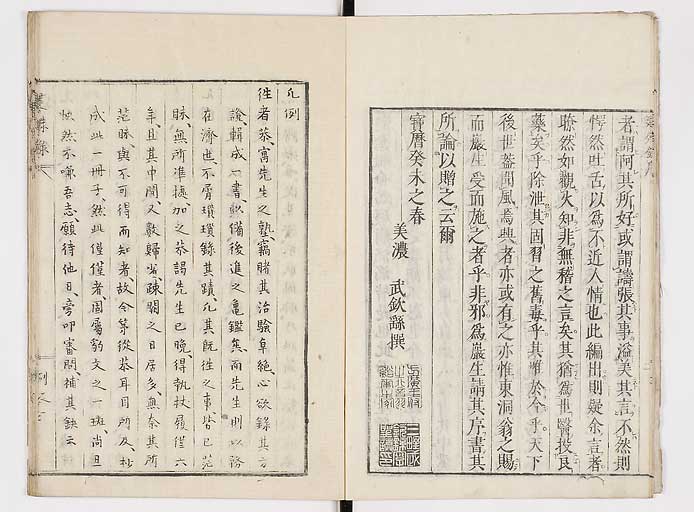 者謂阿其所好或謂譸張其事溢美其言不然則
愕然吐舌以為不近人情也此編出則疑余言者
瞭然如觀火知非無稽之言矣其猶為世醫投良
藥矣乎除泄其固習之舊毒乎其惟於今乎天下
後世蓋聞風焉興者亦或有之亦惟東洞翁之賜
而嚴生受而施之者乎非邪為嚴生請其序書其
所論以贈之云爾
寶曆癸未之春
美濃 武欽繇撰
凡例
徃者恭寓先生之塾竊睹其治驗阜絕心欲錄其方
說輯成一書以備後進之龜鑑焉而先生則以務
在濟世不屑瑣瑣錄其蹟凡其既徃之事皆已茫
昧無所準據加之恭謁先生已晚得執扙履僅六
年且其中間又數歸省疎闊之日居多無奈其所
茫昧與不可得而知者故今第從恭耳目所及抄
成此一冊子然此僅僅者固屬豹文之一斑尚且
怏然不慊吾志願待他日旁叩審問補其缺云